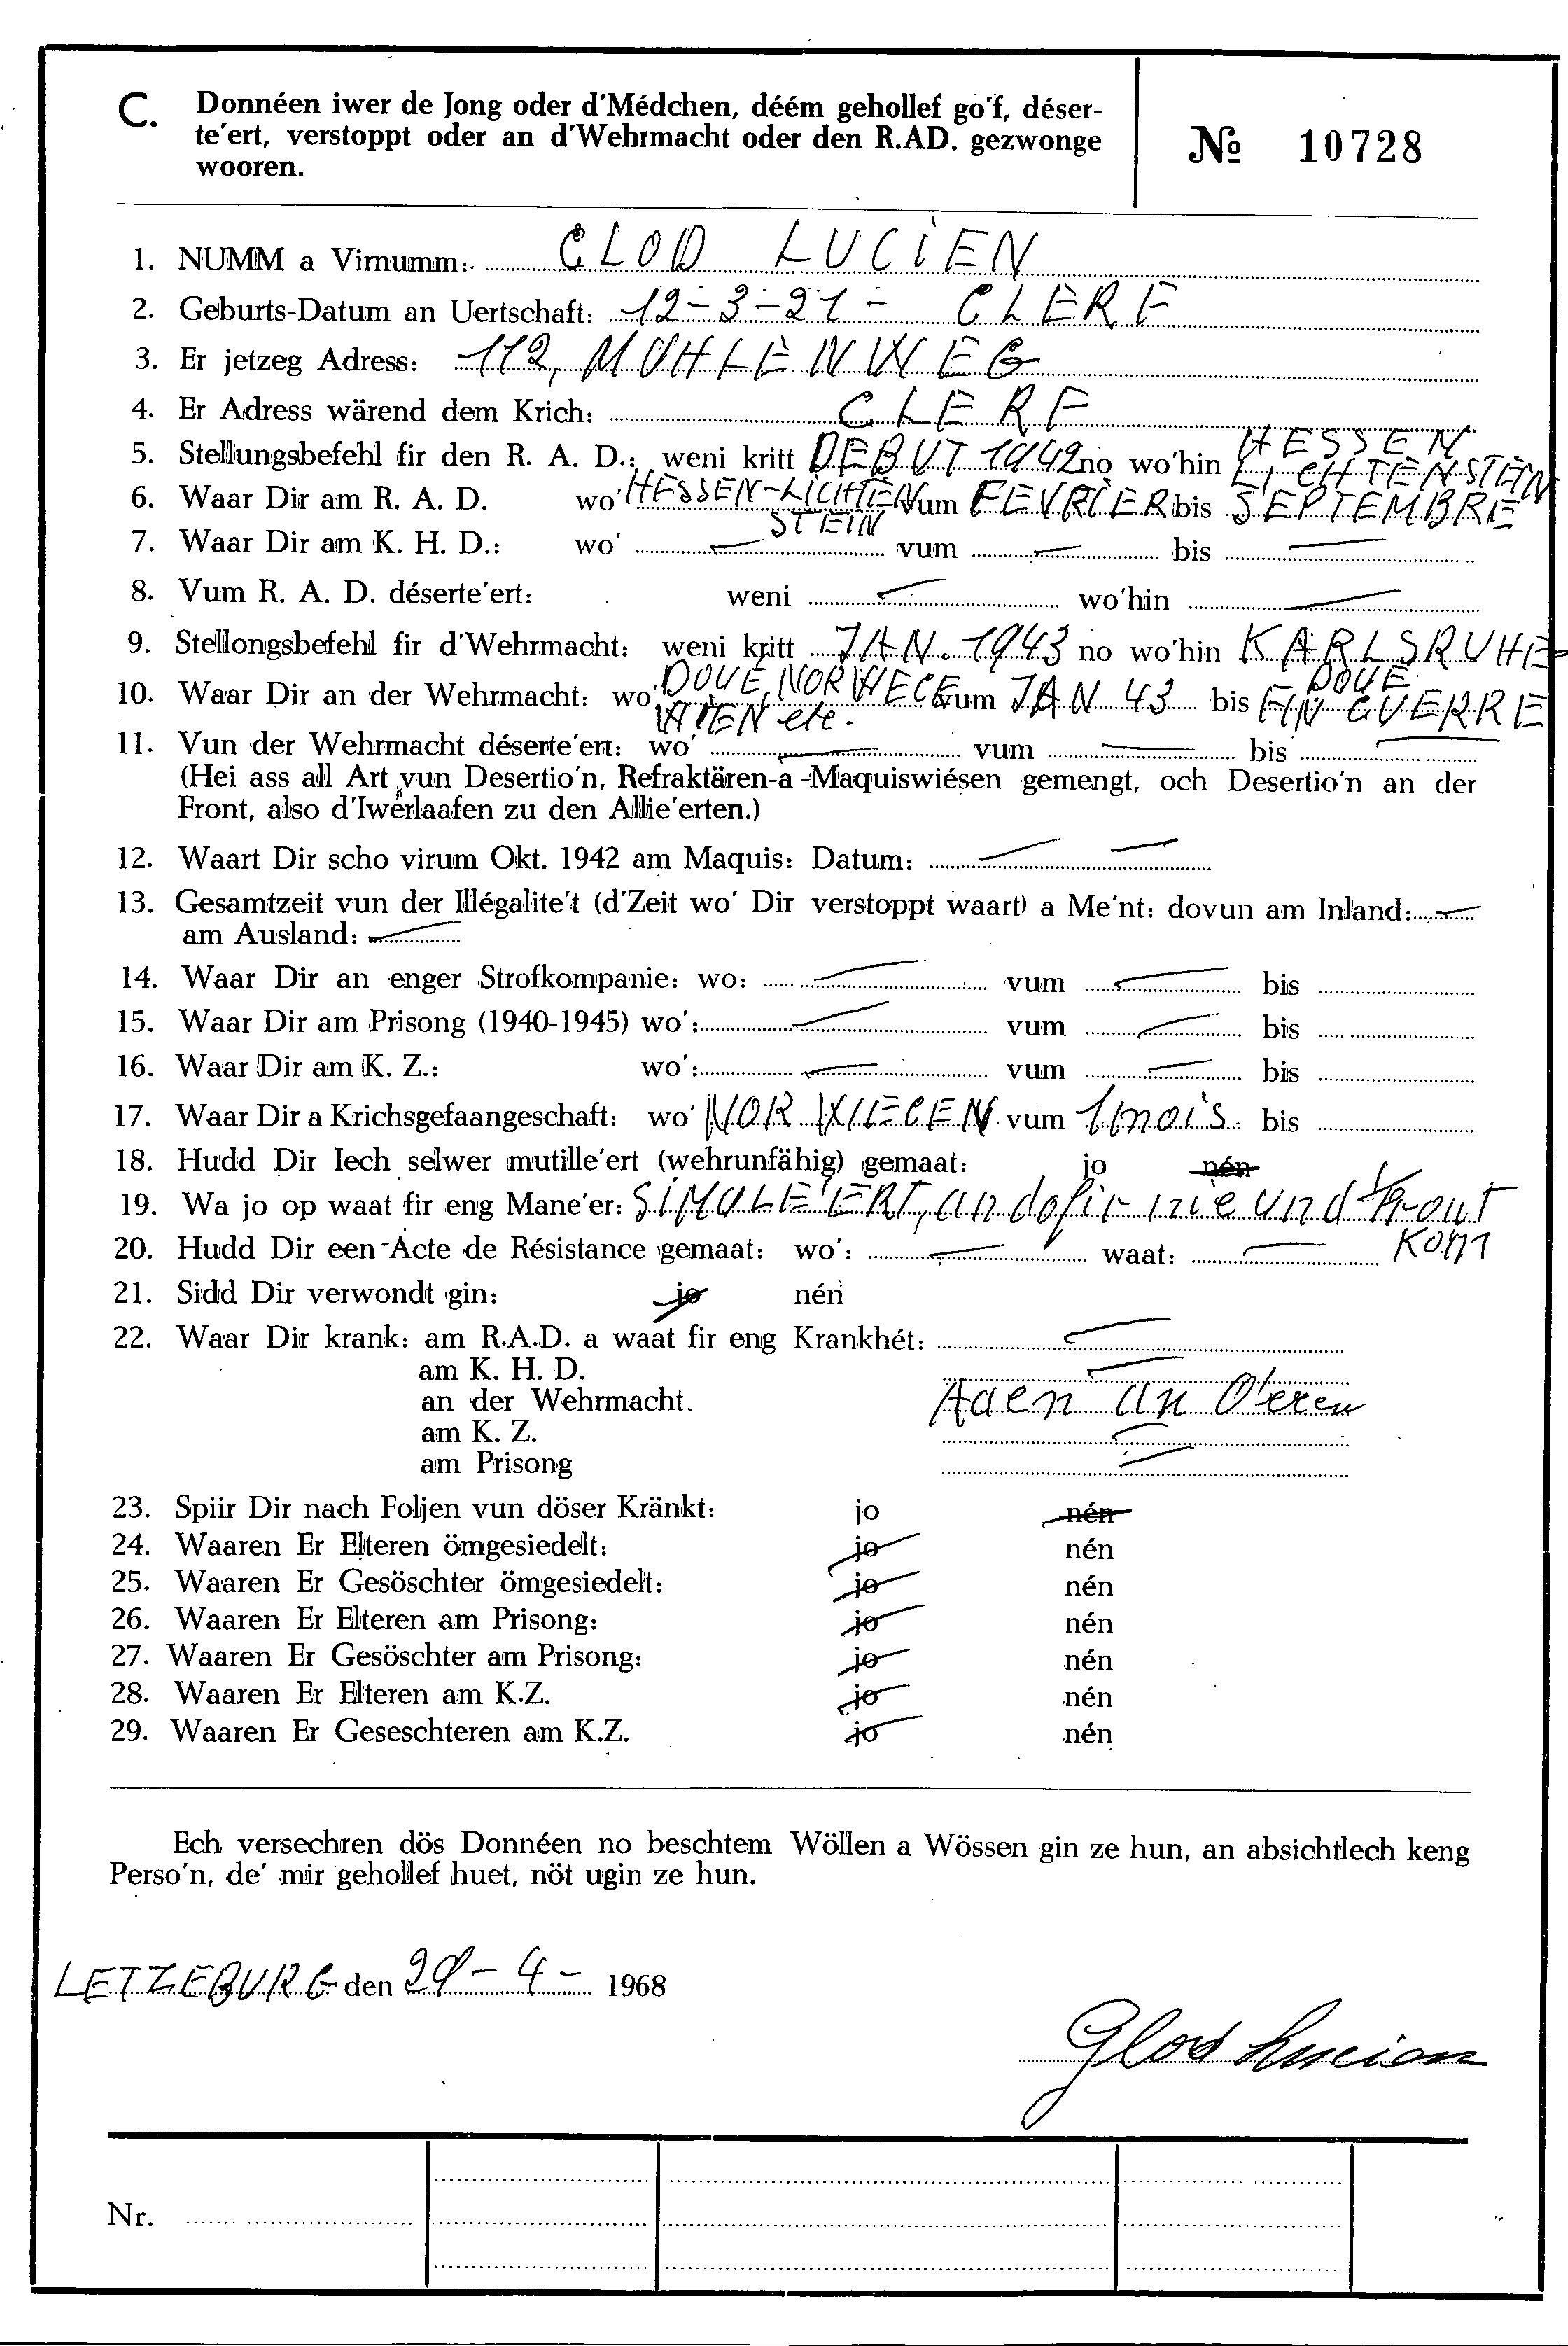 C. Donnéen iwer de Jong oder d'Médchen, déém gehollef go'f, déser-
te'ert, verstoppt oder an d'Wehrmacht oder den R.AD. gezwonge
wooren.
№ 10728
1. NUMM a Virnumm: GLOD LUCIEN
2. Geburts-Datum an Uertschaft: 12-3-21 - CLERF
3. Er jetzeg Adress: 112, MÜHLENWEG
4. Er Adress wärend dem Krich: CLERF
5. Stellungsbefehl fir den R. A. D.: weni kritt DEBUT 1942 no wo'hin HESSEN LICHTENSTEIN
6. Waar Dir am R. A. D. wo' HESSEN-LICHTEN STEIN vum FEVRIER bis SEPTEMBRE
7. Waar Dir am K. H. D.: wo' — vum — bis —
8. Vum R. A. D. déserte'ert: weni — wo'hin —
9. Stellongsbefehl fir d'Wehrmacht: weni kritt JAN. 1943 no wo'hin KARLSRUHE
10. Waar Dir an der Wehrmacht: wo' NORWEGE etc. vum JAN 43 bis FIN GUERRE
11. Vun der Wehrmacht déserte'ert: wo' — vum — bis —
(Hei ass all Art vun Desertio'n, Refraktären-a-Maquiswiésen gemengt, och Desertio'n an der
Front, also d'Iwerlaafen zu den Allie'erten.)
12. Waart Dir scho virum Okt. 1942 am Maquis: Datum: — —
13. Gesamtzeit vun der Illégalite't (d'Zeit wo' Dir verstoppt waart) a Me'nt: dovun am Inland: —
am Ausland: —
14. Waar Dir an enger Strofkompanie: wo: — vum — bis
15. Waar Dir am Prisong (1940-1945) wo': — vum — bis
16. Waar Dir am K. Z.: wo': — vum — bis
17. Waar Dir a Krichsgefaangeschaft: wo' NORWEGEN vum 1 mois bis
18. Hudd Dir Iech selwer mutille'ert (wehrunfähig) gemaat: jo nén
19. Wa jo op waat fir eng Mane'er: SIMULE'ERT, an dofir nie und Front
kom
20. Hudd Dir een Acte de Résistance gemaat: wo': — waat: —
21. Sidd Dir verwondt gin: jo nén
22. Waar Dir krank: am R.A.D. a waat fir eng Krankhét: —
am K. H. D. —
an der Wehrmacht. Aaen an O'eren
am K. Z. —
am Prisong —
23. Spiir Dir nach Foljen vun döser Kränkt: jo nén
24. Waaren Er Elteren ömgesiedelt: jo nén
25. Waaren Er Gesöschter ömgesiedelt: jo nén
26. Waaren Er Elteren am Prisong: jo nén
27. Waaren Er Gesöschter am Prisong: jo nén
28. Waaren Er Elteren am K.Z. jo nén
29. Waaren Er Geseschteren am K.Z. jo nén
Ech versechren dös Donnéen no beschtem Wöllen a Wössen gin ze hun, an absichtlech keng
Perso'n, de' mir gehollef huet, nöt ugin ze hun.
LETZEBURG den 29-4- 1968
Glod Lucien
Nr.